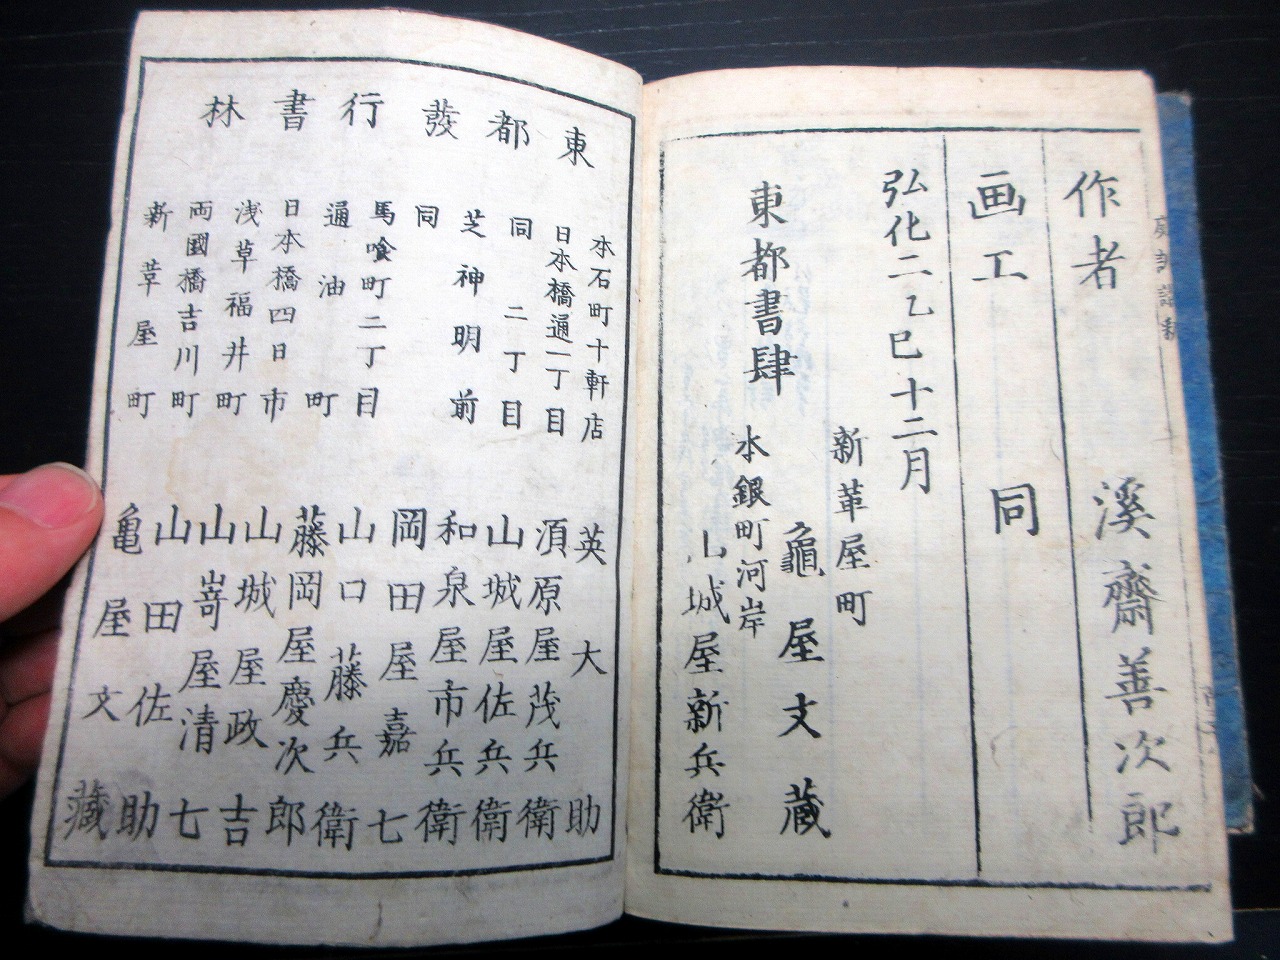 作者 溪齋善次郎
画工 同
弘化二乙巳十二月
東都書肆
新革屋町
龜屋文藏
本銀町河岸
山城屋新兵衛
東都發行書林
本石町十軒店 英大助
日本橋通一丁目 須原屋茂兵衛
同二丁目 山城屋佐兵衛
芝神明前 和泉屋市兵衛
同 岡田屋嘉七
馬喰町二丁目 山口藤兵衛
通油町 藤岡屋慶次郎
日本橋四日市 山城屋政吉
浅草福井町 山嵜屋清七
両國橋吉川町 山田佐助
新革屋町 亀屋文藏